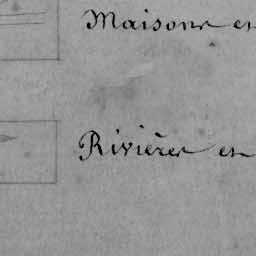 Maisons en
Rivières en